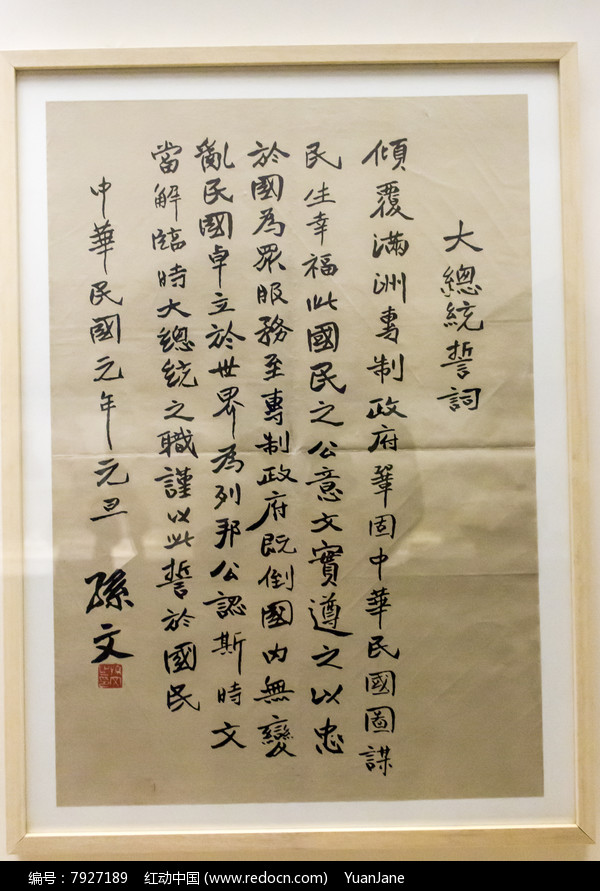 大總統誓詞
傾覆滿洲專制政府鞏固中華民國圖謀
民生幸福此國民之公意文實遵之以忠
於國為眾服務至專制政府既倒國內無變
亂民國卓立於世界為列邦公認斯時文
當解臨時大總統之職謹以此誓於國民
中華民國元年元旦
孫文
编号:7927189 红动中国 (www.redocn.com) YuanJane